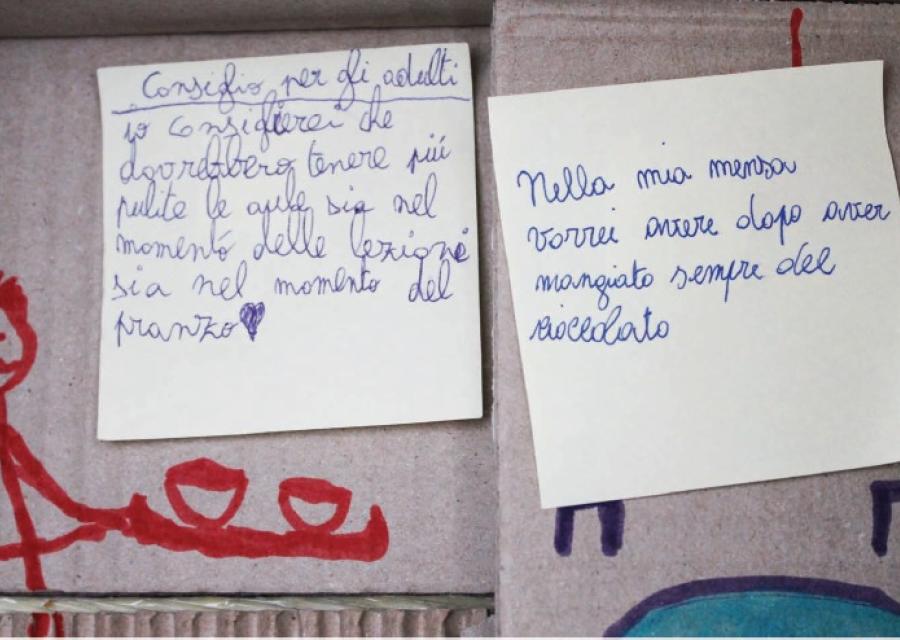 Consiglio per gli adulti
io consiglierei che
dovrebbero tenere piú
pulite le aule sia nel
momento delle lezioni
sia nel momento del
pranzo
Nella mia mensa
vorrei avere dopo aver
mangiato sempre del
cioccolato